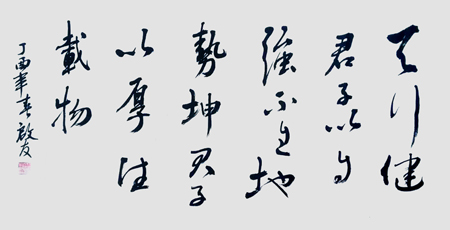 天行健
君子以自
強不息地
勢坤君子
以厚德
載物
丁酉年春啟友